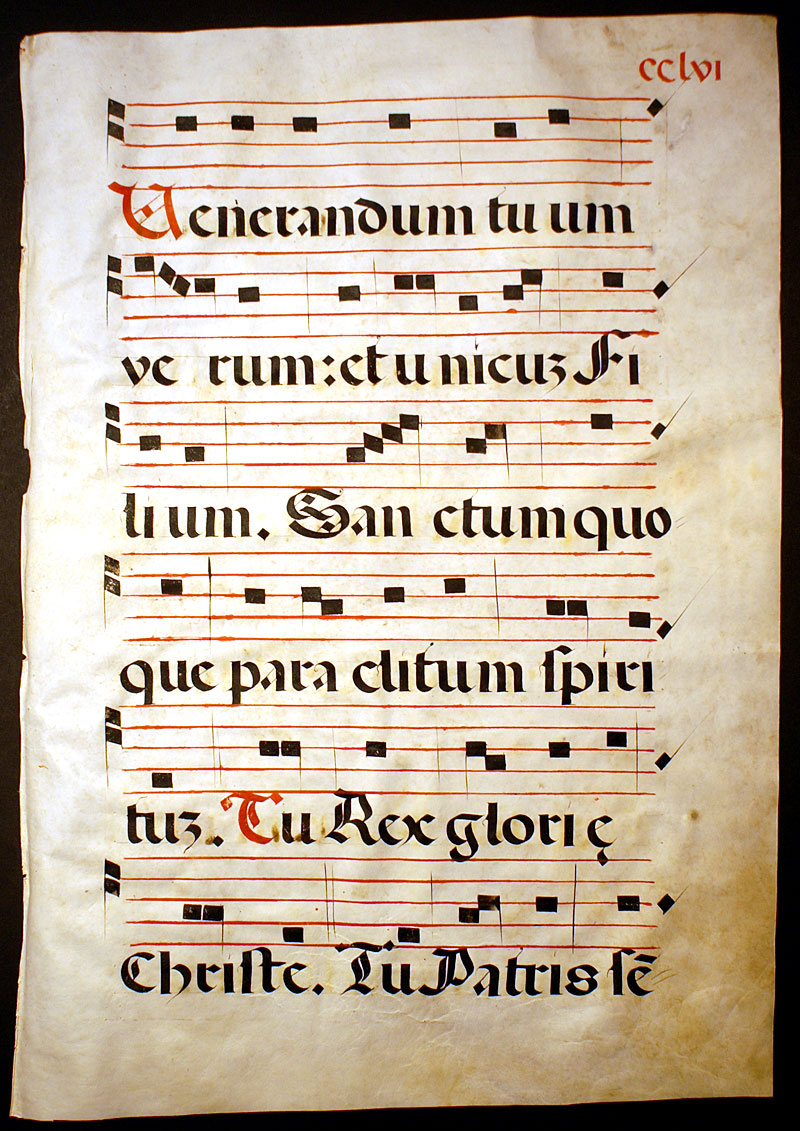 cclvi
Venerandum tu um
ve rum: et u nicuꝫ Fi
li um. San ctum quo
que para clitum ſpiri
tuꝫ. Tu Rex glori ę
Chriſte. Tu Patris ſē